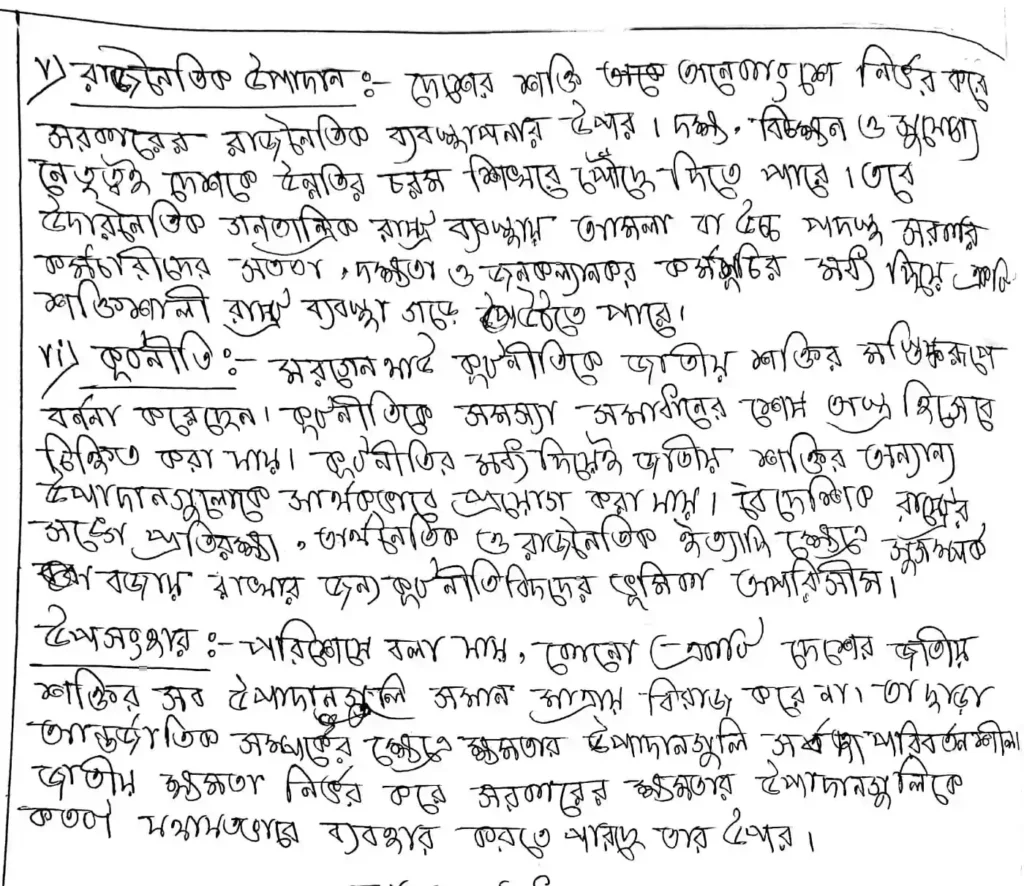 v) রাজনৈতিক উপাদান :- দেশের শক্তি অনেকাংশে নির্ভর করে
সরকারের রাজনৈতিক ব্যবস্থাপনার উপর। দক্ষ, বিচক্ষন ও সুযোগ্য
নেতৃত্বই দেশকে উন্নতির চরম শিখরে পৌঁছে দিতে পারে। তবে
উদারনৈতিক গনতান্ত্রিক রাষ্ট্র ব্যবস্থায় আমলা বা উচ্চ পদস্থ সরকারি
কর্মচারীদের সততা, দক্ষতা ও জনকল্যানকর কর্মসূচির মধ্য দিয়ে একটি
শক্তিশালী রাষ্ট্র ব্যবস্থা গড়ে উঠতে পারে।
vi) কূটনীতি :- মরগেনথাউ কূটনীতিকে জাতীয় শক্তির মস্তিষ্করূপে
বর্ননা করেছেন। কূটনীতিকে সমস্যা সমাধানের শেষ অস্ত্র হিসেবে
চিহ্নিত করা যায়। কূটনীতির মধ্য দিয়েই জাতীয় শক্তির অন্যান্য
উপাদানগুলোকে সার্থকভাবে প্রয়োগ করা যায়। বৈদেশিক রাষ্ট্রের
সঙ্গে প্রতিরক্ষা, অর্থনৈতিক ও রাজনৈতিক ইত্যাদি ক্ষেত্রে সুসম্পর্ক
বজায় রাখার জন্য কূটনীতিবিদদের ভূমিকা অপরিসীম।
উপসংহার :- পরিশেষে বলা যায়, কোনো একটি দেশের জাতীয়
শক্তির সব উপাদানগুলি সমান মাত্রায় বিরাজ করে না। তাছাড়া
আন্তর্জাতিক সম্পর্কের ক্ষেত্রে ক্ষমতার উপাদানগুলি সর্বদা পরিবর্তনশীল।
জাতীয় ক্ষমতা নির্ভর করে সরকারের ক্ষমতার উপাদানগুলিকে
কতটা যথাযতভাবে ব্যবহার করতে পারছে তার উপর।